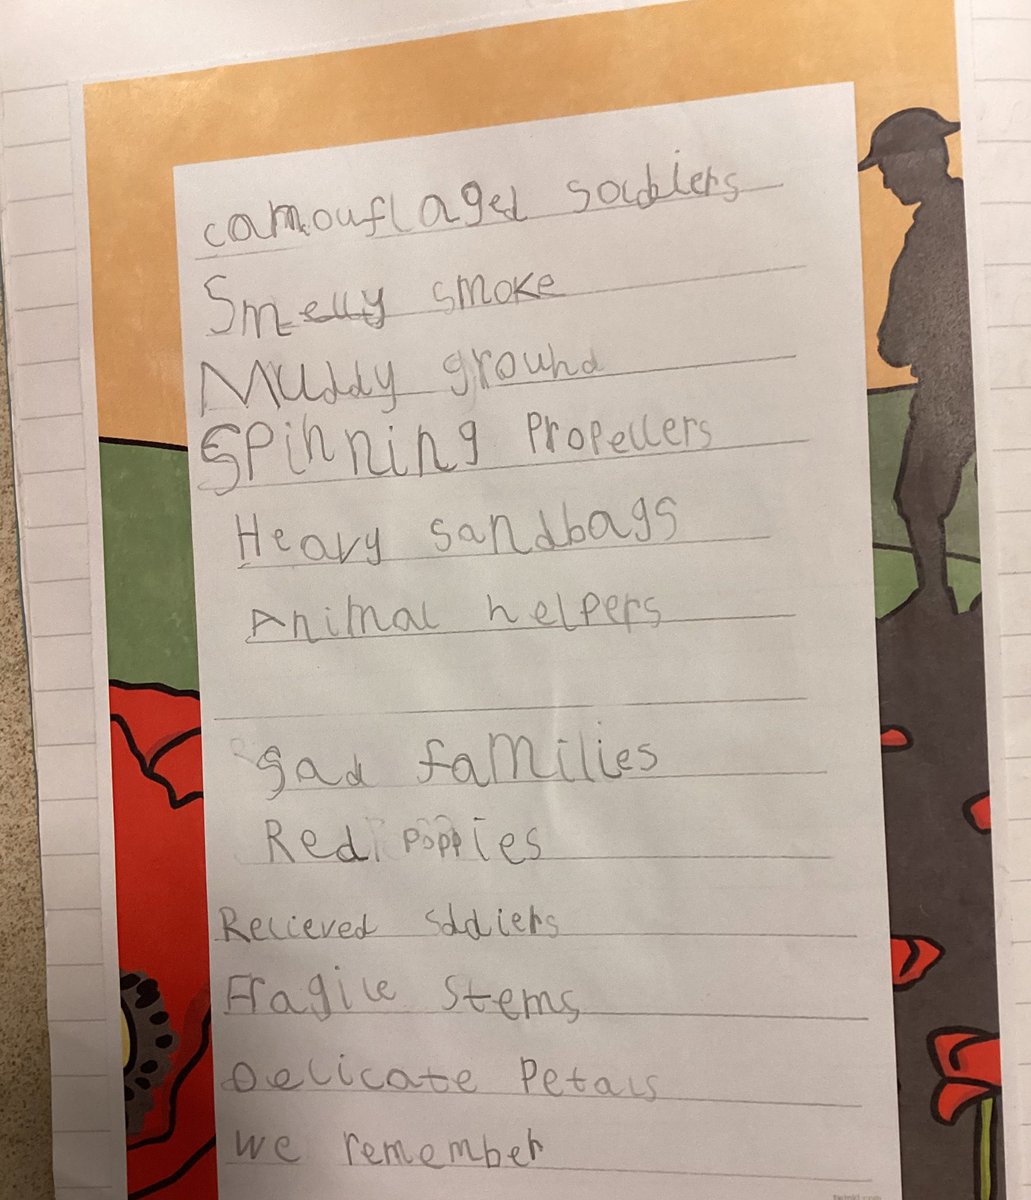 camouflaged soldiers
Smelly smoke
Muddy ground
Spinning Propellers
Heavy sandbags
Animal helpers
Sad families
Red poppies
Relieved soldiers
Fragile Stems
Delicate Petals
We remember